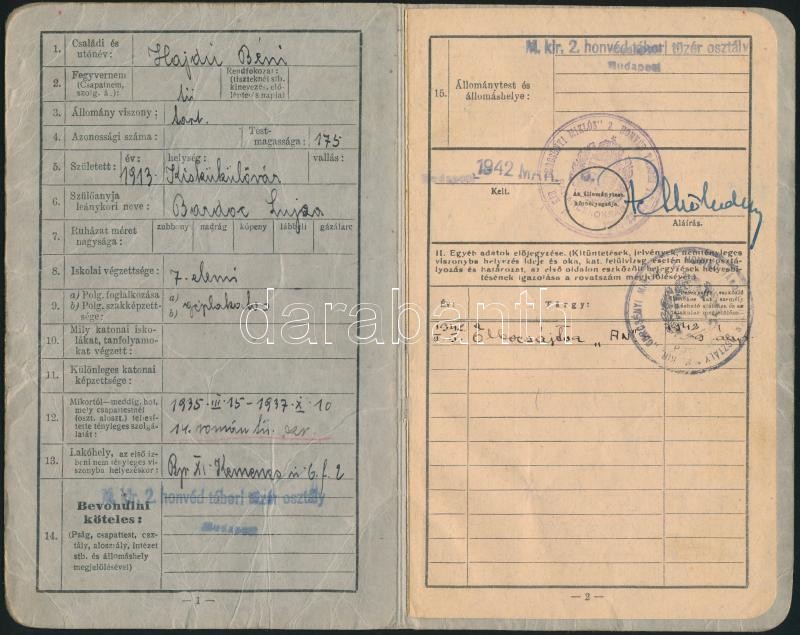 1. Családi és utónév: Hajdú Béni
2. Fegyvernem (Csapatnem, szolg. á.): tü
Rendfokozat: (tiszteknél stb. kinevezés, előléptetés napja)
3. Állomány viszony: tart.
4. Azonossági száma: Testmagassága: 175
5. Született: év: helység: vallás:
1913. Kisküküllővár
6. Szülőanyja leánykori neve: Bardoc Lujza
7. Ruházat méret nagysága: zubbony nadrág köpeny lábbeli gázálarc
8. Iskolai végzettsége: 7. elemi
9. a) Polg. foglalkozása a)
b) Polg. szakképzettsége: b) géplakatos
10. Mily katonai iskolákat, tanfolyamokat végzett:
11. Különleges katonai képzettsége:
12. Mikortól—meddig, hol, mely csapattestnél (oszt. aloszt.) teljesítette tényleges szolgálatát:
1935. III. 15 - 1937. X. 10
14. román tü. ezr.
13. Lakóhely, az első ízbeni nem tényleges viszonyba helyezéskor: Bp. XI. Kemenes u 6. f. 2
M. kir. 2. honvéd tábori tüzér osztály
Budapest
14. Bevonulni köteles:
(Pság, csapattest, osztály, alosztály, intézet stb. és állomáshely megjelölésével)
— 1 —
M. kir. 2. honvéd tábori tüzér osztály
Budapest
15. Állománytest és állomáshelye:
Budapest 1942 MÁR.
Kelt.
Az állománytest körbélyegzője.
Aláírás.
II. Egyéb adatok előjegyzése. (Kitüntetések, jelvények, nemtényleges
viszonyba helyezés ideje és oka, kat. felülvizsg. esetén honort osztá-
lyozás és határozat, az első oldalon eszközölt bejegyzések helyesbí-
tésének igazolása a rovatszám megjelölésével.)
Év: Tárgy:
— 2 —
darabanth